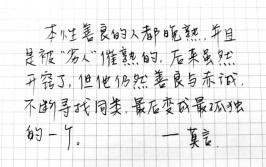 本性善良的人都晚熟，并且
是被“劣人”催熟的，后来虽然
开窍了，但他仍然善良与赤诚，
不断寻找同类，最后变成最孤独
的一个。 —莫言